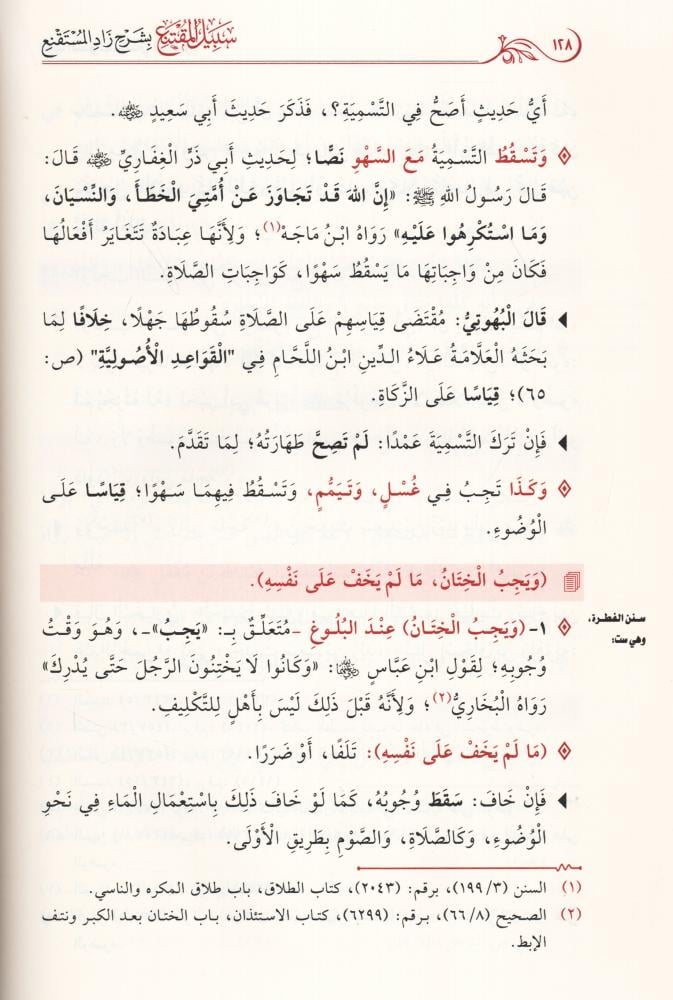 ١٢٨
سَبِيلُ المُقْتَنِعِ بِشَرْحِ زَادِ المُسْتَقْنِعِ
أَيُّ حَدِيثٍ أَصَحُّ فِي التَّسْمِيَةِ؟، فَذَكَرَ حَدِيثَ أَبِي سَعِيدٍ رضي الله عنه.
وَتَسْقُطُ التَّسْمِيَةُ مَعَ السَّهْوِ نَصًّا؛ لِحَدِيثِ أَبِي ذَرٍّ الْغِفَارِيِّ رضي الله عنه قَالَ:
قَالَ رَسُولُ اللهِ ﷺ: «إِنَّ اللهَ قَدْ تَجَاوَزَ عَنْ أُمَّتِيَ الْخَطَأَ، وَالنِّسْيَانَ،
وَمَا اسْتُكْرِهُوا عَلَيْهِ» رَوَاهُ ابْنُ مَاجَهْ(١)؛ وَلِأَنَّهَا عِبَادَةٌ تَتَغَايَرُ أَفْعَالُهَا
فَكَانَ مِنْ وَاجِبَاتِهَا مَا يَسْقُطُ سَهْوًا، كَوَاجِبَاتِ الصَّلَاةِ.
قَالَ الْبُهُوتِيُّ: مُقْتَضَى قِيَاسِهِمْ عَلَى الصَّلَاةِ سُقُوطُهَا جَهْلًا، خِلَافًا لِمَا
بَحَثَهُ الْعَلَّامَةُ عَلَاءُ الدِّينِ ابْنُ اللَّحَّامِ فِي "الْقَوَاعِدِ الْأُصُولِيَّةِ" (ص:
٦٥)؛ قِيَاسًا عَلَى الزَّكَاةِ.
فَإِنْ تَرَكَ التَّسْمِيَةَ عَمْدًا: لَمْ تَصِحَّ طَهَارَتُهُ؛ لِمَا تَقَدَّمَ.
وَكَذَا تَجِبُ فِي غُسْلٍ، وَتَيَمُّمٍ، وَتَسْقُطُ فِيهِمَا سَهْوًا؛ قِيَاسًا عَلَى
الْوُضُوءِ.
(وَيَجِبُ الْخِتَانُ، مَا لَمْ يَخَفْ عَلَى نَفْسِهِ).
سنن الفطرة،
وهي ست:
١- (وَيَجِبُ الْخِتَانُ) عِنْدَ الْبُلُوغِ -مُتَعَلِّقٌ بِـ: «يَجِبُ»-، وَهُوَ وَقْتُ
وُجُوبِهِ؛ لِقَوْلِ ابْنِ عَبَّاسٍ رضي الله عنهما: «وَكَانُوا لَا يَخْتِنُونَ الرَّجُلَ حَتَّى يُدْرِكَ»
رَوَاهُ الْبُخَارِيُّ(٢)؛ وَلِأَنَّهُ قَبْلَ ذَلِكَ لَيْسَ بِأَهْلٍ لِلتَّكْلِيفِ.
(مَا لَمْ يَخَفْ عَلَى نَفْسِهِ): تَلَفًا، أَوْ ضَرَرًا.
فَإِنْ خَافَ: سَقَطَ وُجُوبُهُ، كَمَا لَوْ خَافَ ذَلِكَ بِاسْتِعْمَالِ الْمَاءِ فِي نَحْوِ
الْوُضُوءِ، وَكَالصَّلَاةِ، وَالصَّوْمِ بِطَرِيقِ الْأَوْلَى.
(١) السنن (١٩٩/٣)، برقم: (٢٠٤٣)، كتاب الطلاق، باب طلاق المكره والناسي.
(٢) الصحيح (٦٦/٨)، برقم: (٦٢٩٩)، كتاب الاستئذان، باب الختان بعد الكبر ونتف
الإبط.